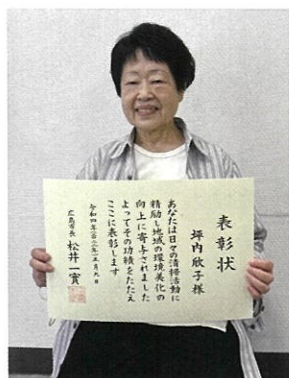 表彰状
坪内欣子様
あなたは日々の清掃活動に
精励し地域の環境美化の
向上に寄与されました
よってその功績をたたえ
ここに表彰します
広島市長 松井一實